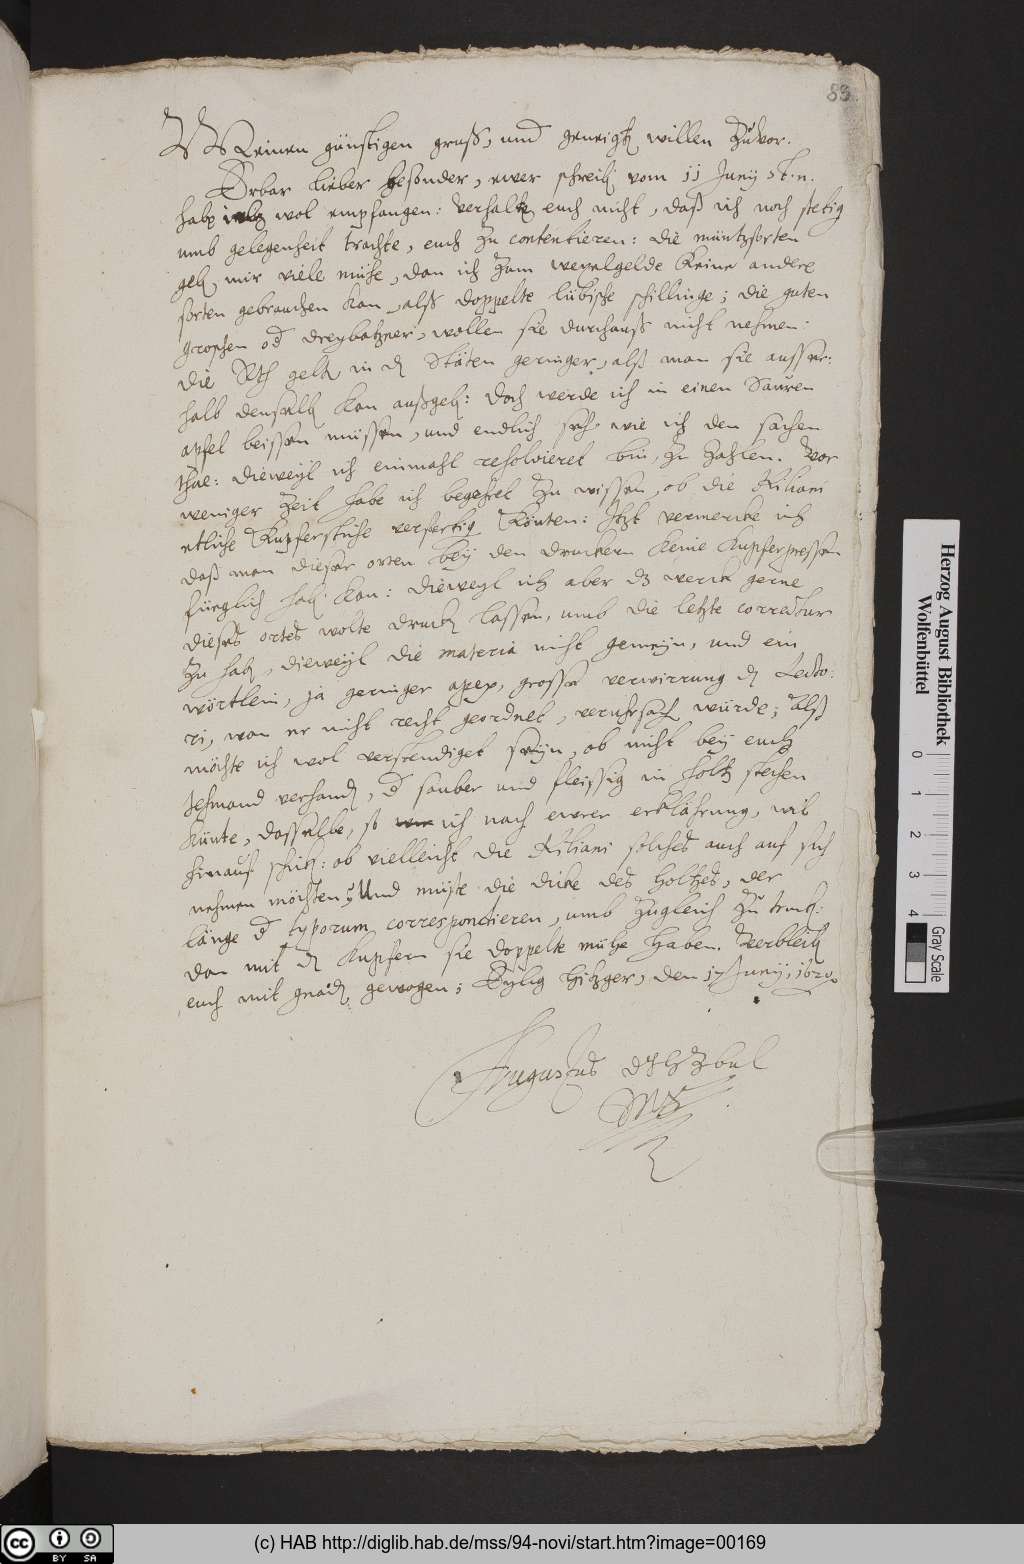 83.
Meinen günstigen gruß, und geneigtē willen zuvor.
Erbar lieber besonder, ewer schreibē vom 11 Junij st. n.
habe ich wol empfangen: verhalte euch nicht, daß ich noch stetig
umb gelegenheit trachte, euch zu contentieren: die müntzsorten
gebē mir viele mühe, dan ich zum wexelgelde keine andere
sorten gebrauchen kan, alß doppelte lübische schillinge; die guten
groschen od dreybatzner, wollen sie durchauß nicht nehmen:
die Rth geltē in dē Stäten geringer, alß man sie ausser:
halb denselbē kan außgebē: doch werde ich in einen sauren
apfel beissen müssen, und endlich sehē wie ich den sachen
thue: dieweyl ich einmahl resolvieret bin, zu zahlen. Vor
weniger Zeit habe ich begehret zu wissen, ob die Kiliani
etliche Kupferstiche verfertigē könten: Jtzt vermercke ich
daß man dieser orten bey den druckern keine kupferpressen
füeglich habē kan: dieweyl ich aber dz werck gerne
dieses ortes wolte druckē lassen, umb die letzte correctur
zu habē, dieweyl die materia nicht gemeyn, und ein
wörtlein, ja geringer apex, grosse verwirrung dē Lecto:
ri, wan er nicht recht geordnet, veruhrsachē würde; Alß
möchte ich wol verstendiget seyn, ob nicht bey euch
jehmand verhandē, d sauber und fleissig in holtz stechen
künte, dasselbe, so ich nach ewrer erklährung, wil
hinauf schickē: ob vielleicht die Kiliani solches auch auf sich
nehmen möchten? Und müste die dicke des holtzes, der
länge d typorum correspondieren, umb zugleich zu truckē:
dan mit dē kupfern sie doppelte mühe haben. Verbleibē
euch mit gnadē gewogen; Eylig Hitzger, den 17 Junij, 1620.
Augustus dHzBuL
Mp
Herzog August Bibliothek
Wolfenbüttel
0 1 2 3 4
Gray Scale
cc BY SA
(c) HAB http://diglib.hab.de/mss/94-novi/start.htm?image=00169